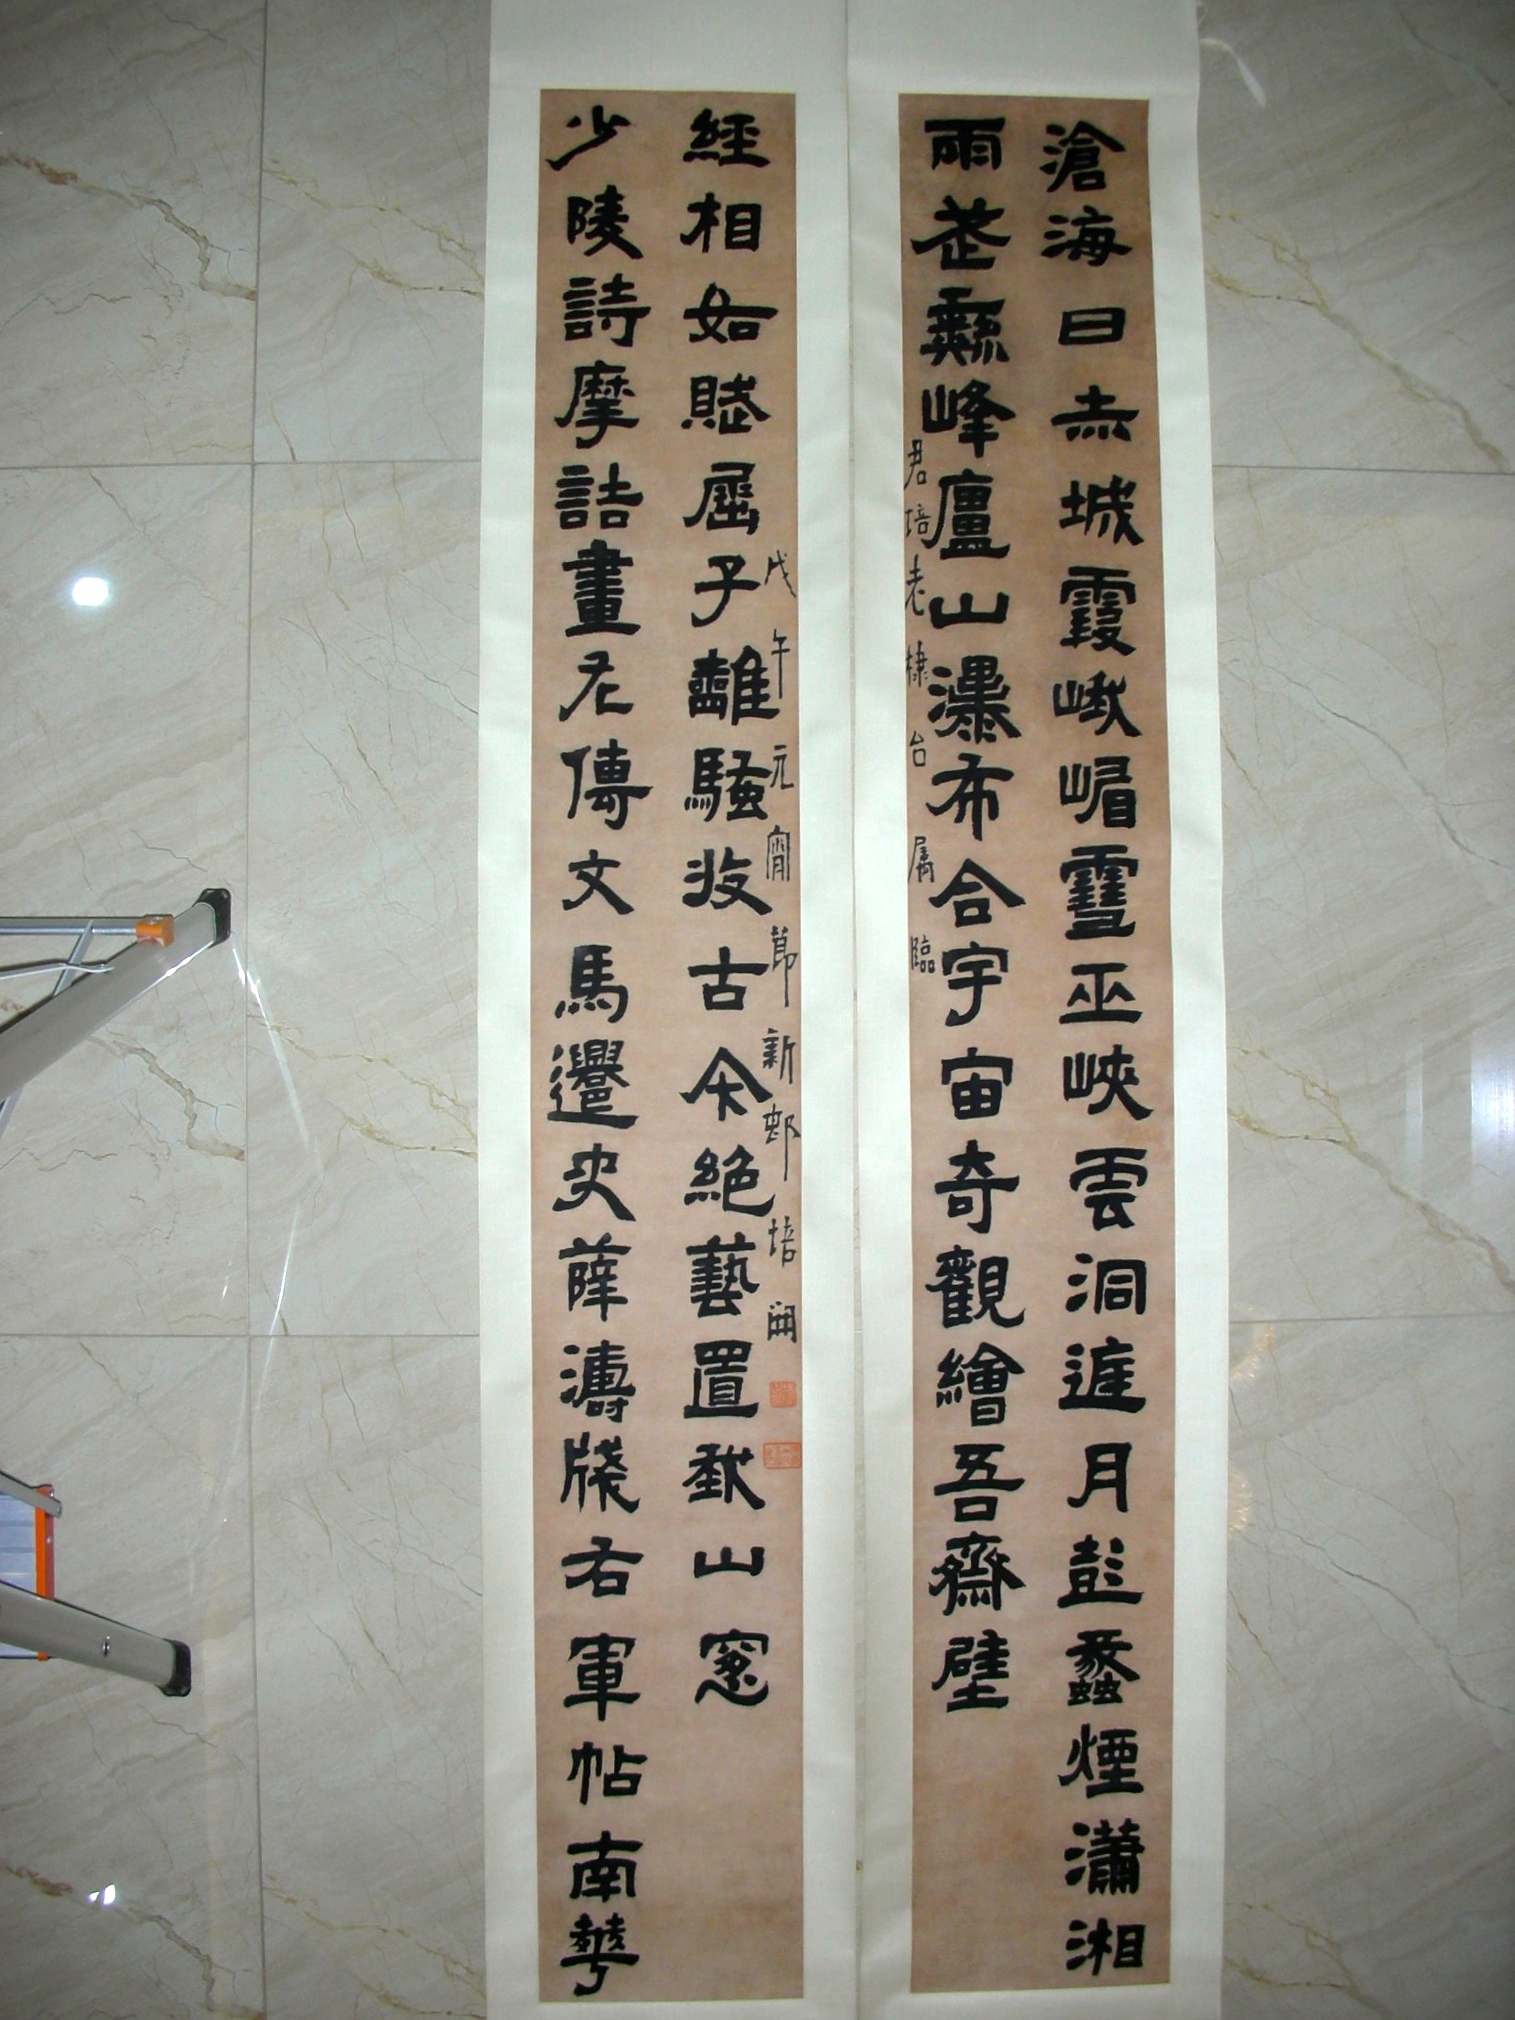 滄海日赤城霞峨嵋雪巫峽雲洞庭月彭蠡煙瀟湘
雨武彞峰廬山瀑布合宇宙奇觀繪吾齋壁
君培老棣台屬臨
少陵詩摩詰畫左傳文馬遷史薛濤牋右軍帖南華
經相如賦屈子離騷收古今絕藝置我山窗
戊午元宵節新邨培開